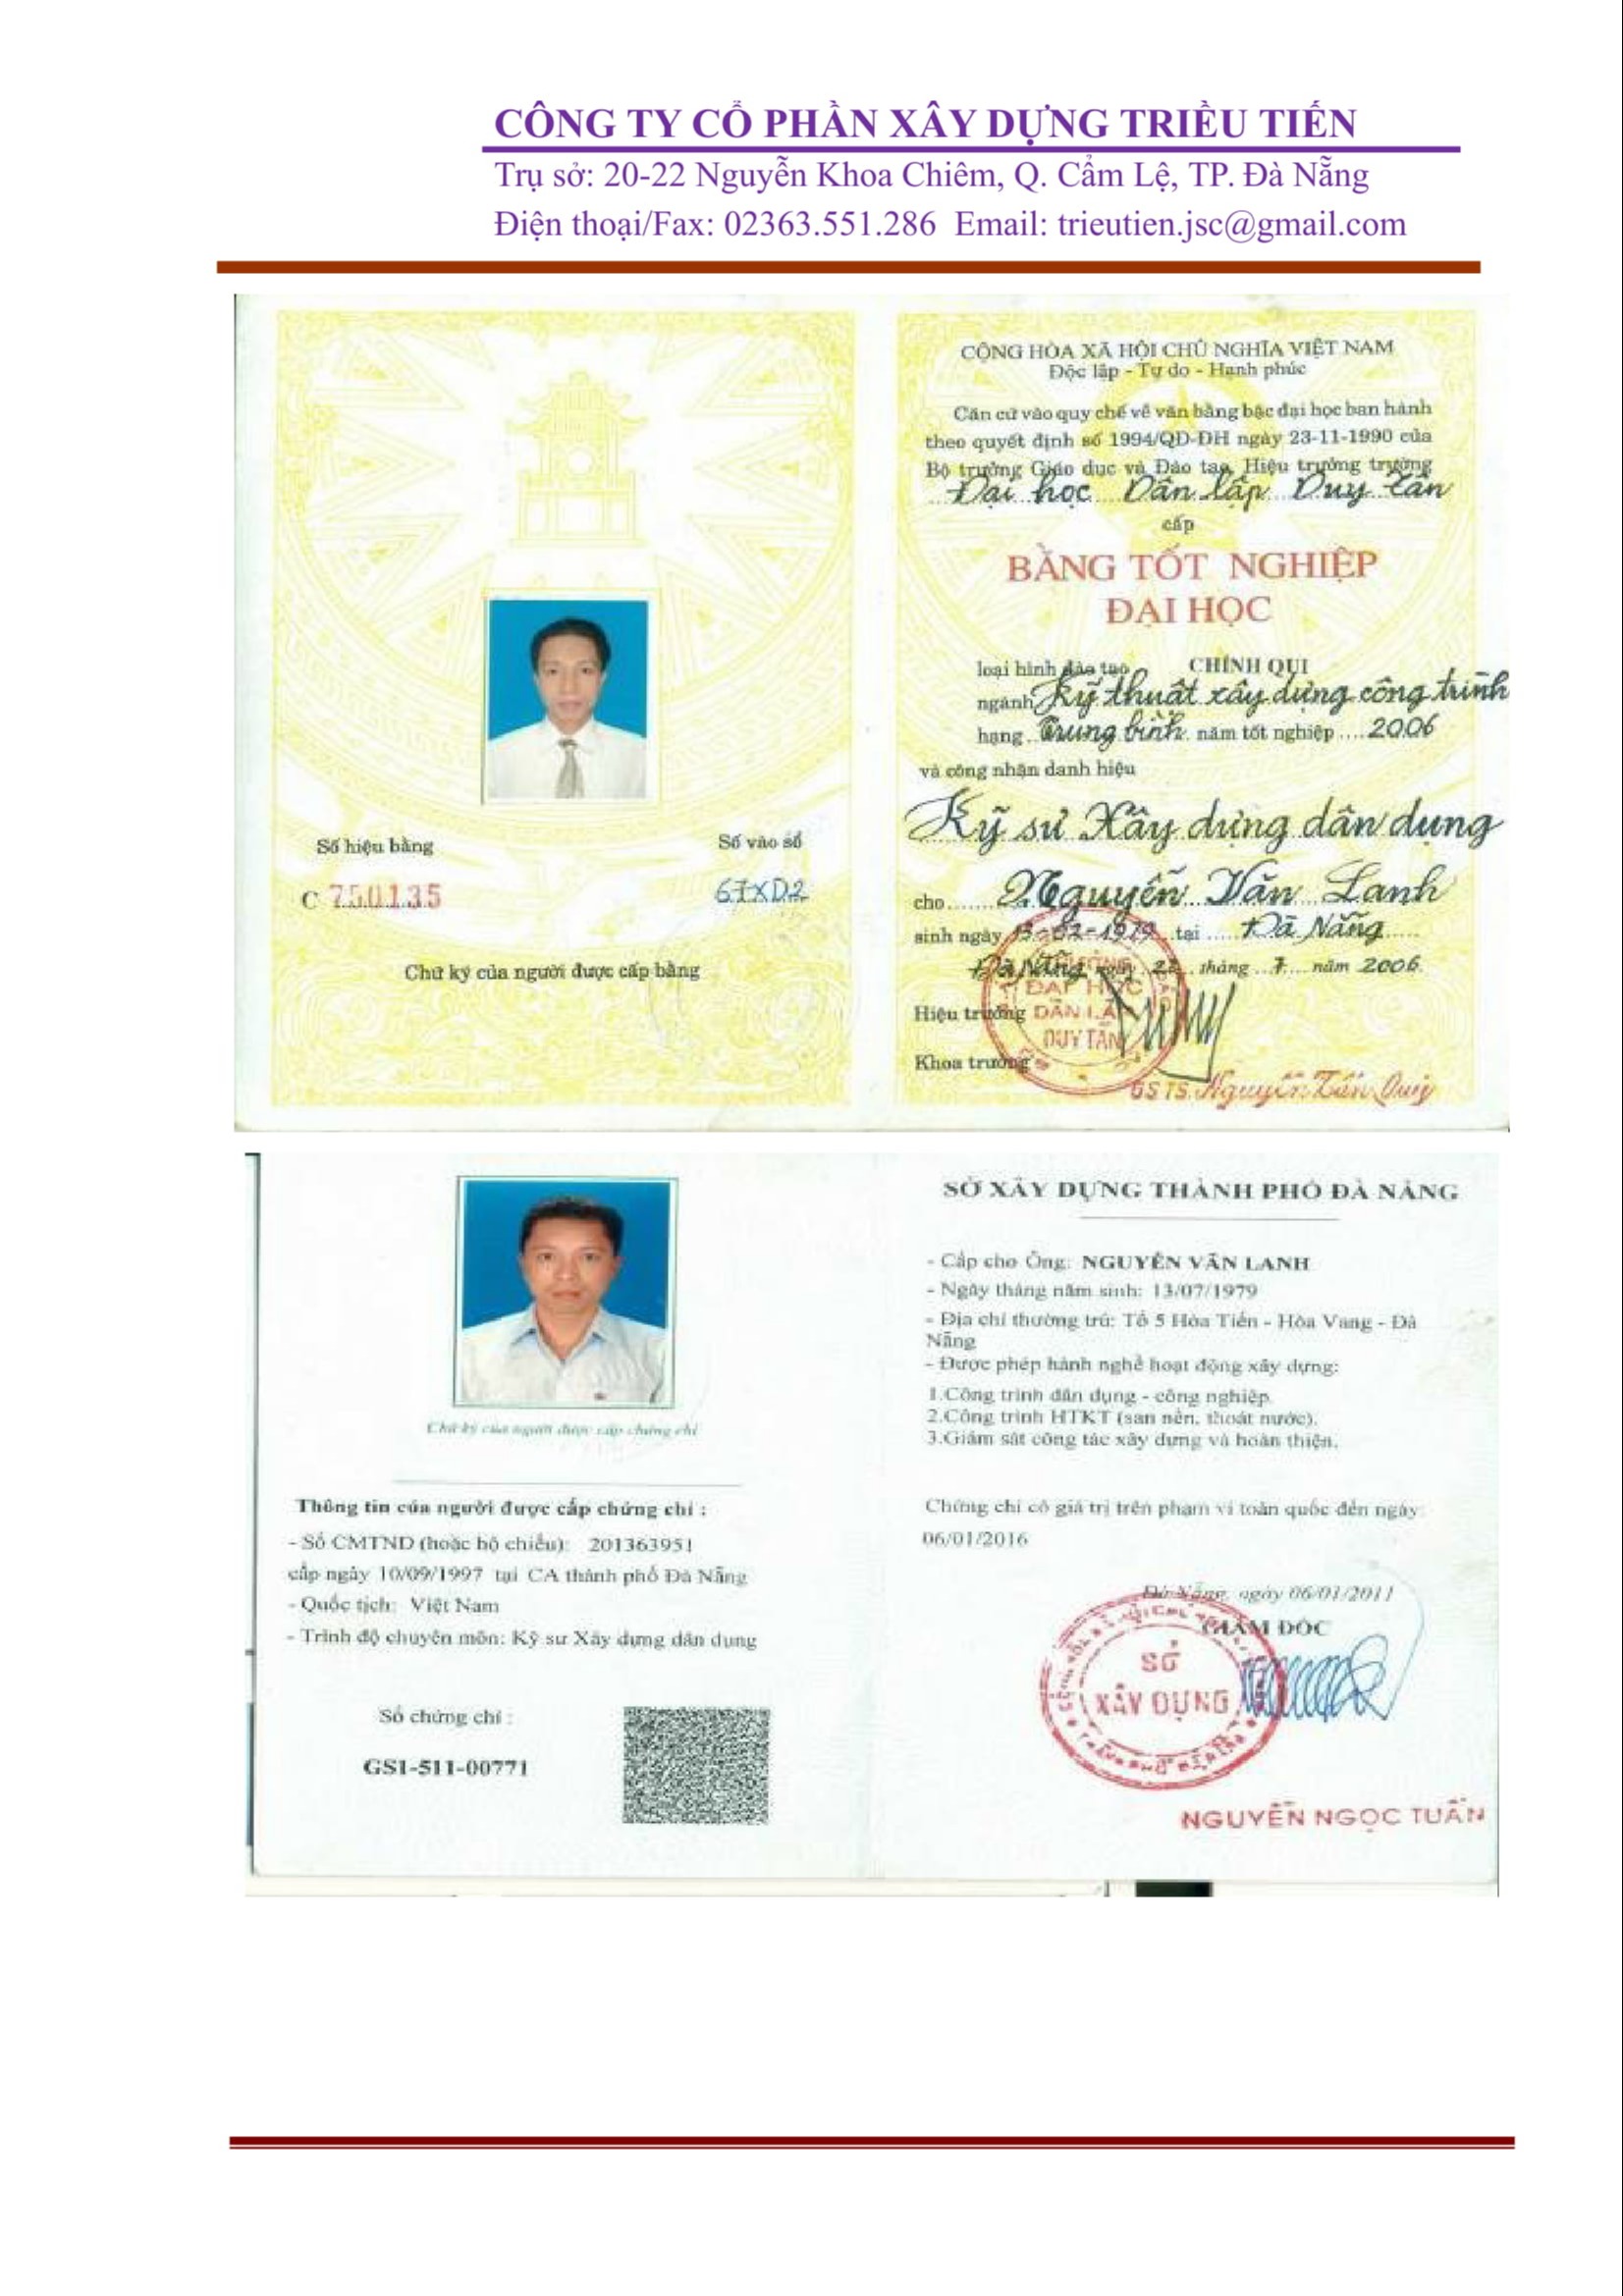 CÔNG TY CỔ PHẦN XÂY DỰNG TRIỀU TIẾN
Trụ sở: 20-22 Nguyễn Khoa Chiêm, Q. Cẩm Lệ, TP. Đà Nẵng
Điện thoại/Fax: 02363.551.286 Email: trieutien.jsc@gmail.com
CỘNG HÒA XÃ HỘI CHỦ NGHĨA VIỆT NAM
Độc lập - Tự do - Hạnh phúc
Căn cứ vào quy chế về văn bằng bậc đại học ban hành
theo quyết định số 1994/QD-ĐH ngày 23-11-1990 của
Bộ trưởng Giáo dục và Đào tạo, Hiệu trưởng trường
Đại học Dân lập Duy Tân
cấp
BẰNG TỐT NGHIỆP
ĐẠI HỌC
loại hình đào tạo CHÍNH QUI
ngành Kỹ thuật xây dựng công trình
hạng Trung bình năm tốt nghiệp 2006
và công nhận danh hiệu
Kỹ sư Xây dựng dân dụng
cho Nguyễn Văn Lanh
sinh ngày tại Đà Nẵng
Đà Nẵng ngày 22 tháng 7 năm 2006
Hiệu trưởng
Khoa trưởng
ĐẠI HỌC
DÂN LẬP
DUY TÂN
GS TS. Nguyễn Tấn Quý
Số hiệu bằng
C 750135
Số vào sổ
67XD2
Chữ ký của người được cấp bằng
Chữ ký của người được cấp chứng chỉ
Thông tin của người được cấp chứng chỉ :
- Số CMTND (hoặc hộ chiếu): 201363951
cấp ngày 10/09/1997 tại CA thành phố Đà Nẵng
- Quốc tịch: Việt Nam
- Trình độ chuyên môn: Kỹ sư Xây dựng dân dụng
Số chứng chỉ :
GS1-511-00771
SỞ XÂY DỰNG THÀNH PHỐ ĐÀ NẴNG
- Cấp cho Ông: NGUYỄN VĂN LANH
- Ngày tháng năm sinh: 13/07/1979
- Địa chỉ thường trú: Tổ 5 Hòa Tiến - Hòa Vang - Đà
Nẵng
- Được phép hành nghề hoạt động xây dựng:
1.Công trình dân dụng - công nghiệp.
2.Công trình HTKT (san nền, thoát nước).
3.Giám sát công tác xây dựng và hoàn thiện.
Chứng chỉ có giá trị trên phạm vi toàn quốc đến ngày:
06/01/2016
Đà Nẵng, ngày 06/01/2011
GIÁM ĐỐC
SỞ
XÂY DỰNG
NGUYỄN NGỌC TUẤN